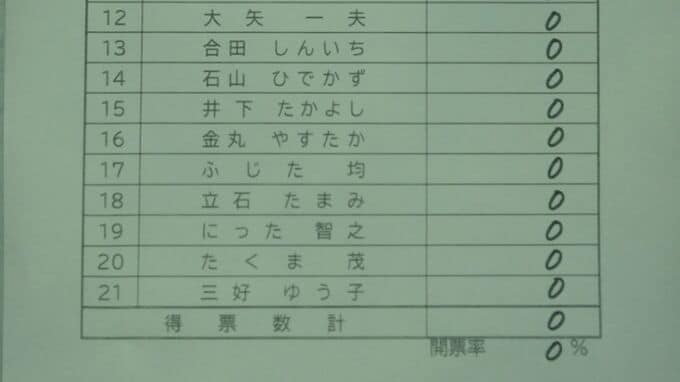 12 大矢 一夫 0
13 合田 しんいち 0
14 石山 ひでかず 0
15 井下 たかよし 0
16 金丸 やすたか 0
17 ふじた 均 0
18 立石 たまみ 0
19 にった 智之 0
20 たくま 茂 0
21 三好 ゆう子 0
得票数計 0
開票率 0%